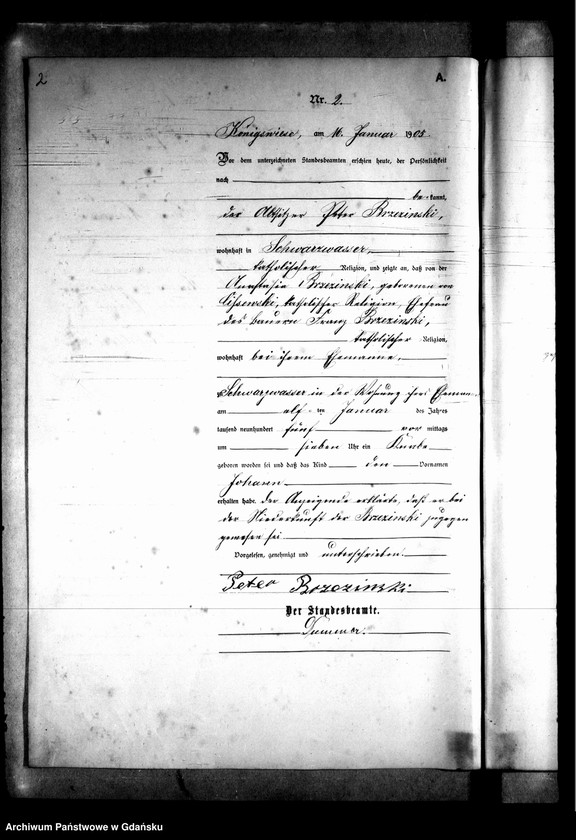 2
A.
Nr. 2.
Königswiese, am 16. Januar 1905
Vor dem unterzeichneten Standesbeamten erschien heute, der Persönlichkeit
nach
be kannt,
der Altsitzer Peter Brzezinski,
wohnhaft in Schwarzwasser,
katholischer Religion, und zeigte an, daß von der
Anastasia Brzezinski, geborenen von
Cissewski, katholischer Religion, Ehefrau
des Bauern Franz Brzezinski,
katholischer Religion,
wohnhaft bei ihrem Ehemanne,
zu Schwarzwasser in der Wohnung ihres Ehemannes
am elf ten Januar des Jahres
tausend neunhundert fünf vor mittags
um sieben Uhr ein Knabe
geboren worden sei und daß das Kind den Vornamen
Johann
erhalten habe. Der Anzeigende erklärte, daß er bei
der Niederkunft der Brzezinski zugegen
gewesen sei.
Vorgelesen, genehmigt und unterschrieben.
Peter Brzezinski
Der Standesbeamte.
Archiwum Państwowe w Gdańsku